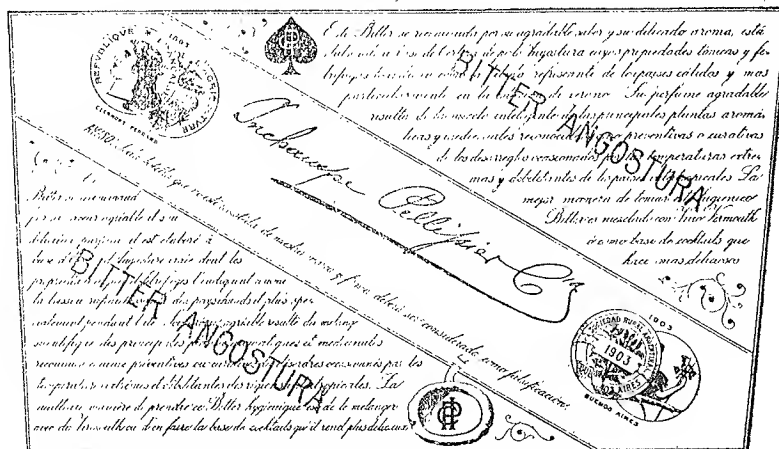 Este Bitter se recomienda por su agradable sabor y su delicado aroma, está
elaborado a base de Corteza de palo Angostura cuyas propiedades tónicas y fe-
brífugas lo como bebida refrescante de los paises cálidos y mas
particularmente en la de verano. Su perfume agradable
resulta de la mezcla inteligente de las principales plantas aromá-
ticas y medicinales reconocidas como preventivas o curativas
de los desarreglos ocasionados por las temperaturas extre-
mas y debilitantes de los paises tropicales La
mejor manera de tomar el higienico
Bitter es mezclado con Vino Vermouth
ó como base de cocktails que
hace mas deliciosos
BITTER ANGOSTURA
REPUBLIQUE
1903
AGRICULTURE
Inchauspe Pellissier Cia
AVISO: Toda botella que no esté revestida de nuestra marca y firma deberá ser considerada como falsificación.
Ce
Bitter se recommand
par sa saveur agréable et son
délicieux parfum il est élaboré à
base d'écorce d'Angosture vraie dont les
propriétés et fébrifuges l'indiquent comme
la boisson des pays chauds et plus spé-
cialement pendant l'été. Son arome agréable résulte du mélange
scientifique des principales plantes aromatiques et médicinales
reconnues comme préventives ou curatives des désordres occasionnés par les
températures extrêmes et débilitantes des régions tropicales. La
meilleure manière de prendre ce Bitter hygiénique est de le mélanger
avec du Vermouth ou d'en faire la base de cocktails qu'il rend plus délicieux
BITTER ANGOSTURA
1903
SOCIEDAD RURAL ARGENTINA
1903
BUENOS AIRES
BUENOS AIRES